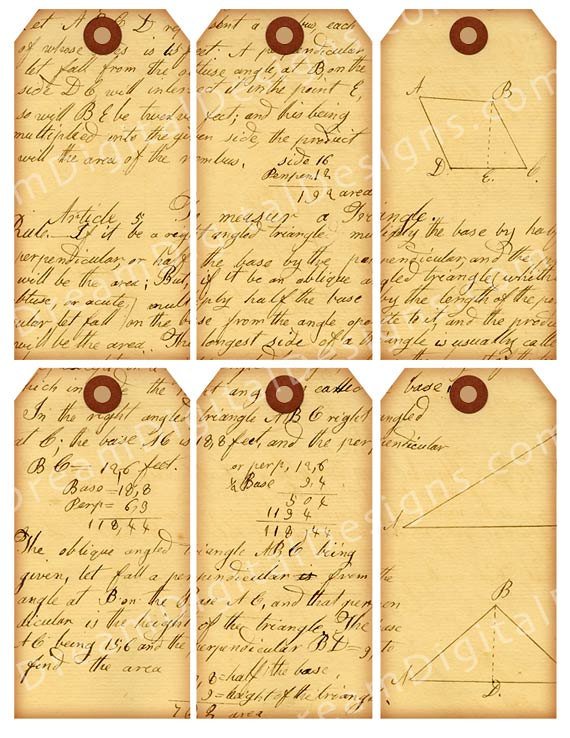 Let A B C D, represent a rhombus, each
of whose sides is 16 feet. A perpendicular
let fall from the obtuse angle, at B, on the
side D C, will intersect it in the point E,
so will B E be twelve feet; and his being
multiplied into the given side, the product
will the area of the rhombus.
side 16
Perpen 12
192 area
A B
D E. C.
Article 5, To measure a Triangle.
Rule. If it be a right angled triangle, multiply the base by half
perpendicular or half the base by the perpendicular, and the
will be the area; But, if it be an oblique angled triangle, whith
obtuse, or acute, multiply half the base by the length of the pe
cular, let fall on the base from the angle opposite to it, and the produc
will be the area. The longest side of a triangle is usually calle
which in the right angle called base;
In the right angled triangle A B C right angled
at C: the base A C is 18,8 feet, and the perpendicular
B C = 12,6 feet.
Base = 18,8
Perp = 6,3
118,44
or perp, 12,6
½ Base 9,4
504
1134
118,44
A
The oblique angled triangle A B C being
given, let fall a perpendicular from the
angle at B on the Base A C, and that perpen
dicular is the height of the triangle. The base
A C being 15,6 and the perpendicular B D = 9, to
find the area
= half the base,
9 = height of the triangle
70 2 area
B
A
D.
DreamDigitalDesigns.com